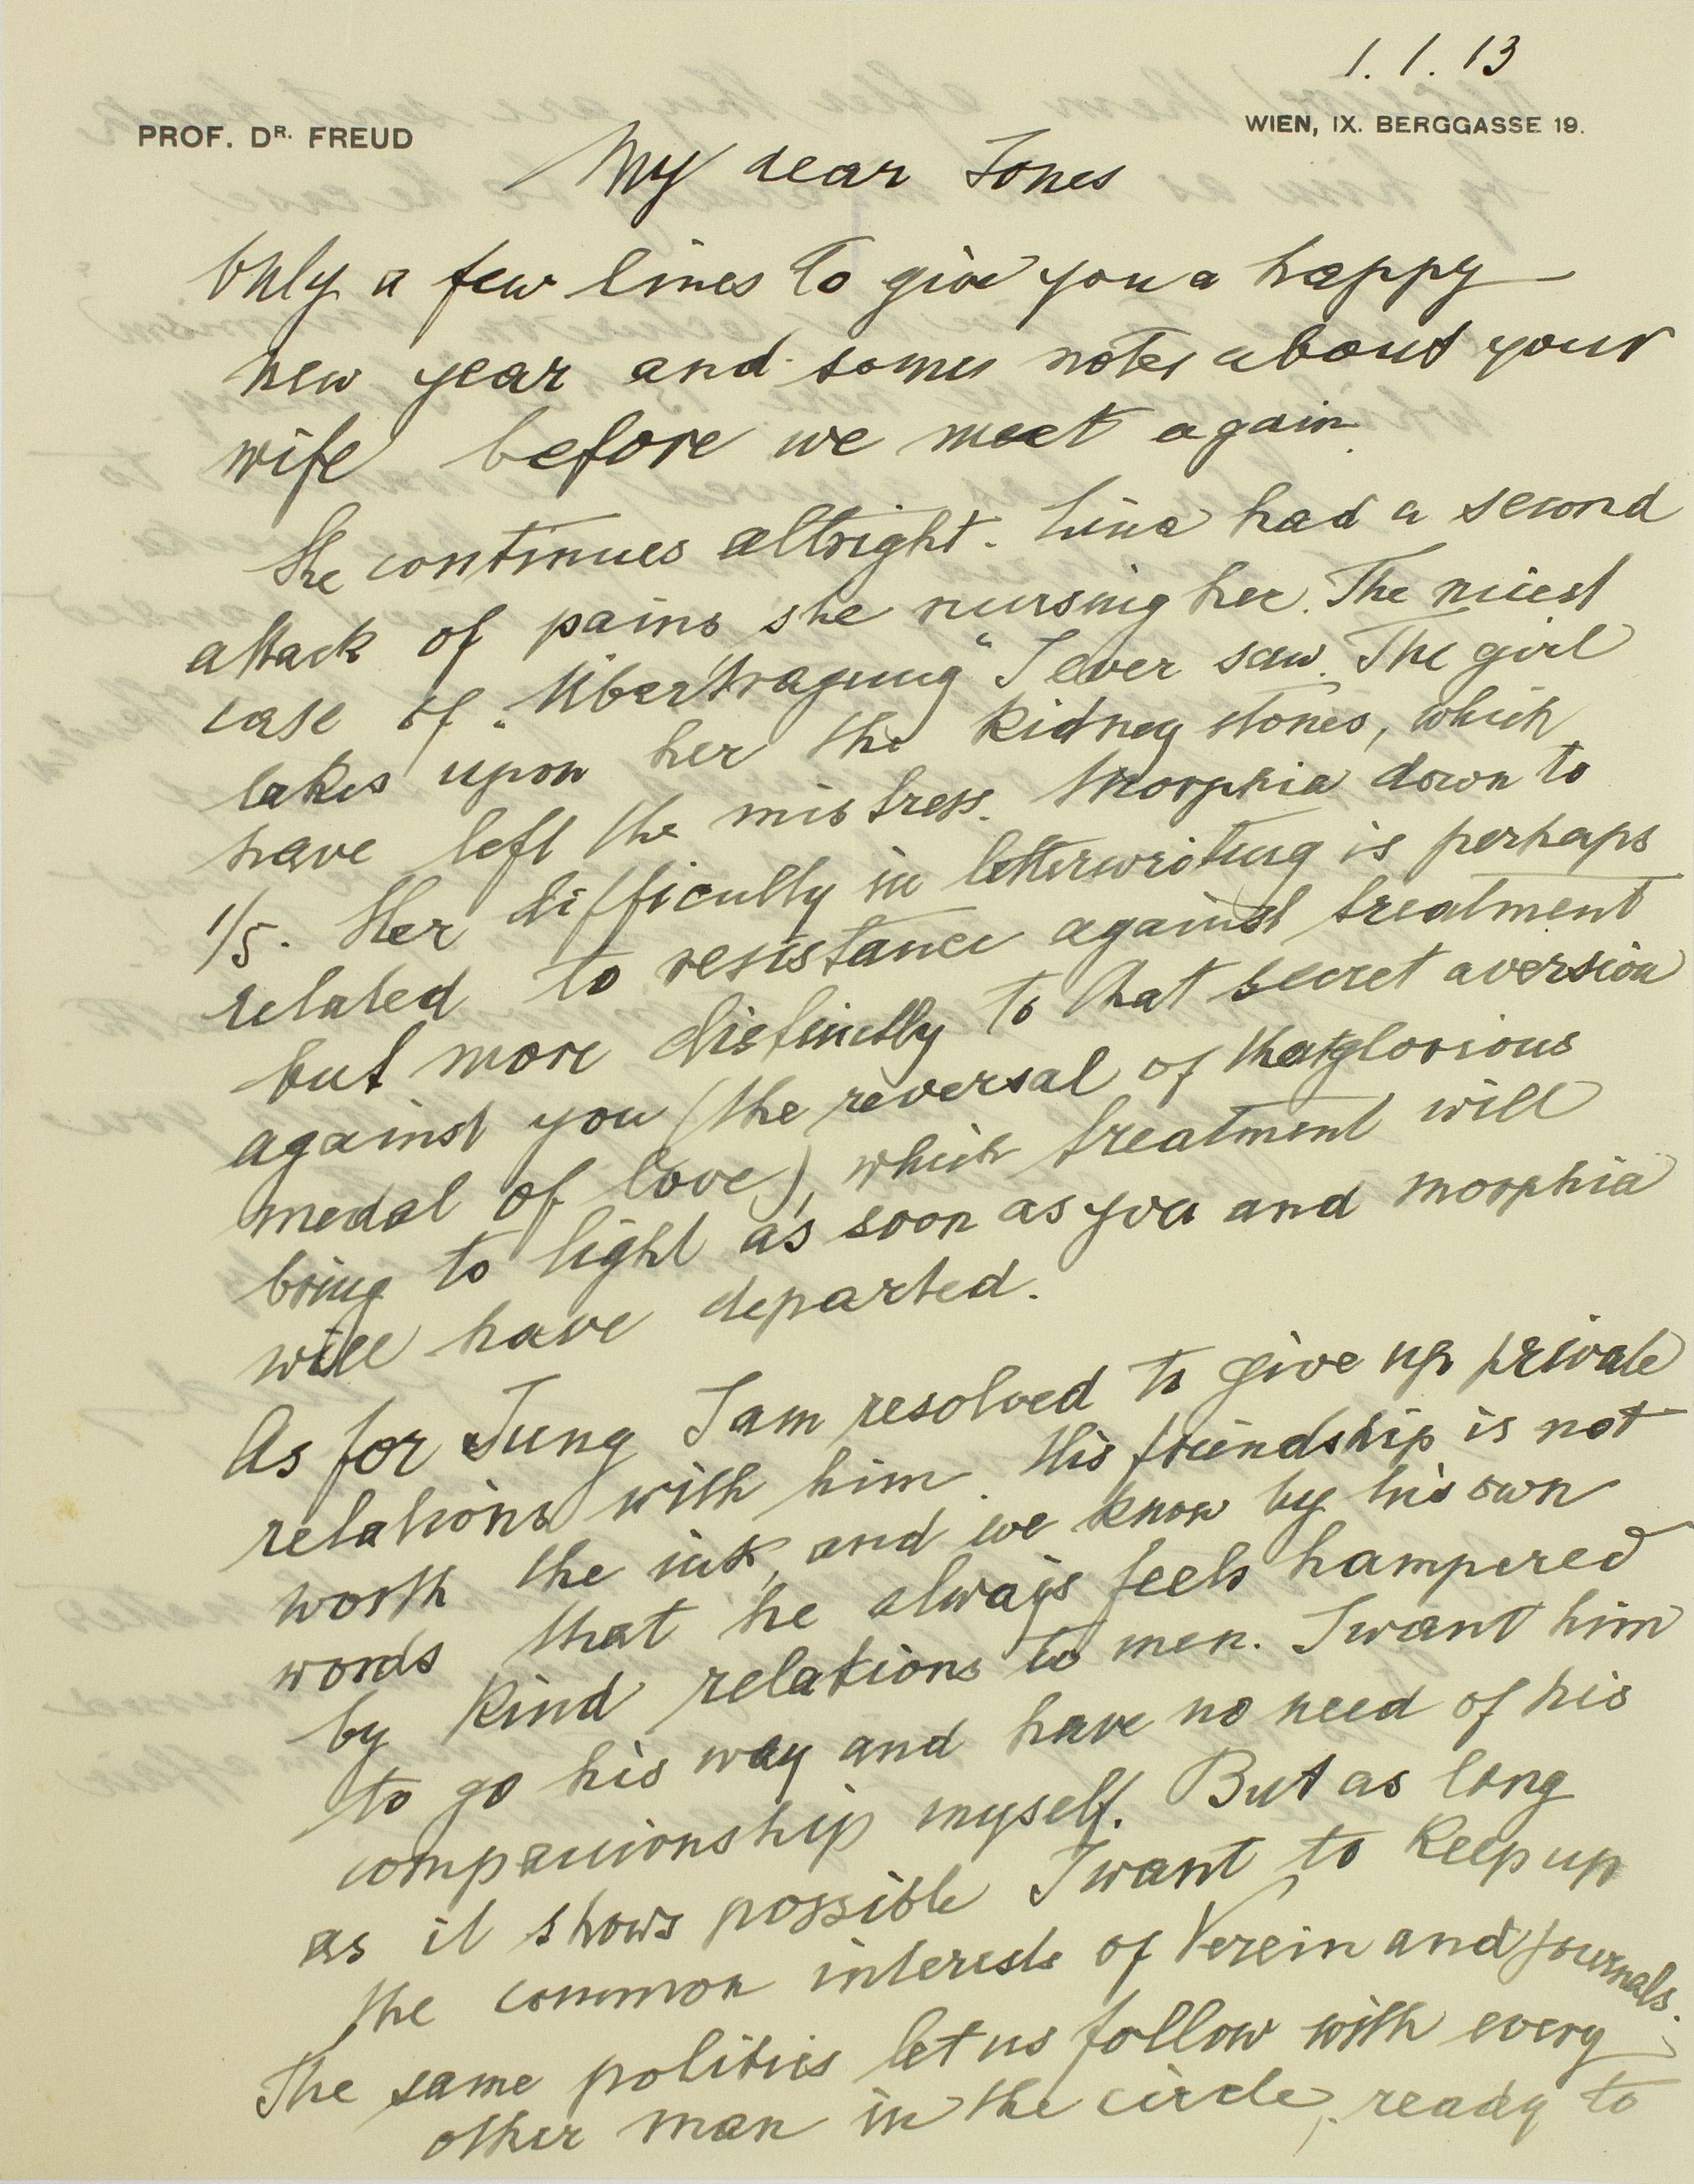 1. 1. 13
PROF. DR. FREUD
WIEN, IX. BERGGASSE 19.
My dear Jones
Only a few lines to give you a happy
new year and some notes about your
wife before we meet again.
She continues allright. Lina had a second
attack of pains she nursing her. The nicest
case of „Übertragung“ I ever saw. The girl
takes upon her the kidney stones, which
have left the mistress. Morphia down to
1/5. Her difficulty in letterwriting is perhaps
related to resistance against treatment
but more distinctly to that secret aversion
against you (the reversal of that glorious
medal of love), which treatment will
bring to light as soon as you and morphia
will have departed.
As for Jung I am resolved to give up private
relations with him. His friendship is not
worth the ink, and we know by his own
words that he always feels hampered
by kind relations to men. I want him
to go his way and have no need of his
companionship myself. But as long
as it shows possible I want to keep up
the common interests of Verein and Journals.
The same politics let us follow with every
other man in the circle, ready to